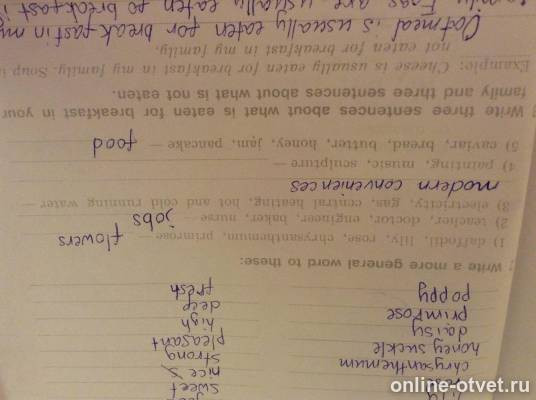 sweet
nice
chrysanthemum strong
honey suckle pleasant
daisy high
primrose deep
poppy fresh
Write a more general word to these:
1) daffodil, lily, rose, chrysanthemum, primrose — flowers
2) teacher, doctor, engineer, baker, nurse — jobs
3) electricity, gas, central heating, hot and cold running water —
modern conveniences
4) painting, music, sculpture —
5) caviar, bread, butter, honey, jam, pancake — food
Write three sentences about what is eaten for breakfast in your
family and three sentences about what is not eaten.
Example: Cheese is usually eaten for breakfast in my family. Soup is
not eaten for breakfast in my family.
Oatmeal is usually eaten for breakfast in my
family. Eggs are usually eaten for breakfast
online-otvet.ru